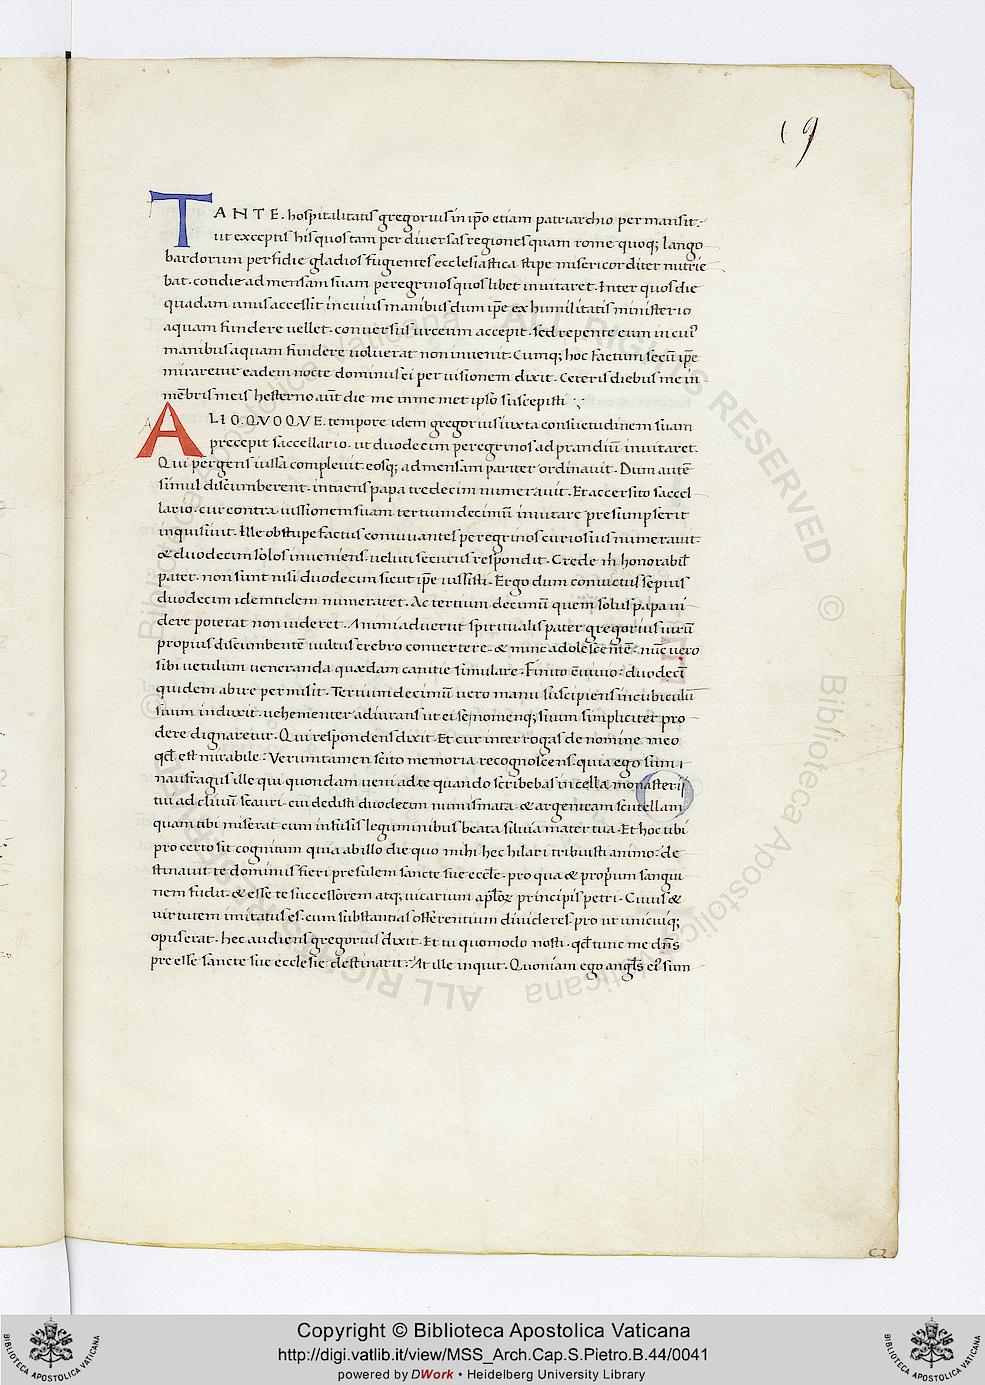 19
TANTE. hospitalitatis gregorius in ip̄o etiam patriarchio permansit.
ut exceptis his quos tam per diuersas regiones quam rome quoq; lango
bardorum perfidie gladios fugientes ecclesiastica stipe misericorditer nutrie
bat. cotidie ad mensam suam peregrinos quos libet inuitaret. Inter quos die
quadam unus accessit in cuius manibus dum ip̄e ex humilitatis ministerio
aquam fundere uellet. conuersus urceum accepit. sed repente eum in cui'
manibus aquam fundere uoluerat non inuenit. Cumq; hoc factum secū ip̄e
miraretur eadem nocte dominus ei per uisionem dixit. Ceteris diebus me in
mēbris meis hesterno aūt die me in me met ipso suscepisti
ALIO.QVOQVE. tempore idem gregorius iuxta consuetudinem suam
precepit saccellario. ut duodecim peregrinos ad prandiū inuitaret.
Qui pergens iussa compleuit. eosq; ad mensam pariter ordinauit. Dum autē
simul discumberent. intuens papa tredecim numerauit. Et accersito saccel
lario. cur contra iussionem suam tertium decimū inuitare presumpserit
inquisiuit. Ille obstupefactus conuiuantes peregrinos curiosius numerauit
& duodecim solos inueniens. ueluti securus respondit. Crede m̄ honorabil
pater. non sunt nisi duodecim sicut ip̄e iussisti. Ergo dum conuictus sepius
duodecim idemtidem numeraret. Ac tertium decimū quem solus papa ui
dere poterat non uideret. Animaduertit spiritualis pater gregorius uirū
propius discumbentē uultus crebro conuertere. & nunc adolescentē. nūc uero
sibi uetulum ueneranda quædam canitie simulare. Finito cuiuio. duodecī
quidem abire permisit. Tertium decimū uero manu suscipiens in cubiculū
suum induxit. uehementer adiurans ut ei se nomenq; suum simpliciter pro
dere dignaretur. Qui respondens dixit. Et cur interrogas de nomine meo
qđ est mirabile. Veruntamen scito memoria recognoscens. quia ego sum
naufragus ille qui quondam ueni ad te quando scribebas in cella monasterij
tui ad cliuū scauri. cui dedisti duodecim numismata. & argenteam scutellam
quam tibi miserat cum infusis leguminibus beata siluia mater tua. Et hoc tibi
pro certo sit cognitum quia ab illo die quo mihi hec hilari tribuisti animo. de
stinauit te dominus fieri presulem sancte sue eccle. pro qua & proprium sangui
nem fudit. & esse te successorem atq; uicarium apl̄oꝝ principis petri. Cuius &
uirtutem imitatus es. cum substantias offerentium diuideres. pro ut unicuiq;
opus erat. hec audiens gregorius dixit. Et tu quomodo nosti. qđ tunc me dn̄s
pre esse sancte sue ecclesie destinarit. At ille inquit. Quoniam ego angl̄s ei' sum
C2
ALL RIGHTS RESERVED © Biblioteca Apostolica Vaticana
Copyright © Biblioteca Apostolica Vaticana
http://digi.vatlib.it/view/MSS_Arch.Cap.S.Pietro.B.44/0041
powered by DWork • Heidelberg University Library
BIBLIOTECA APOSTOLICA VATICANA
BIBLIOTECA APOSTOLICA VATICANA